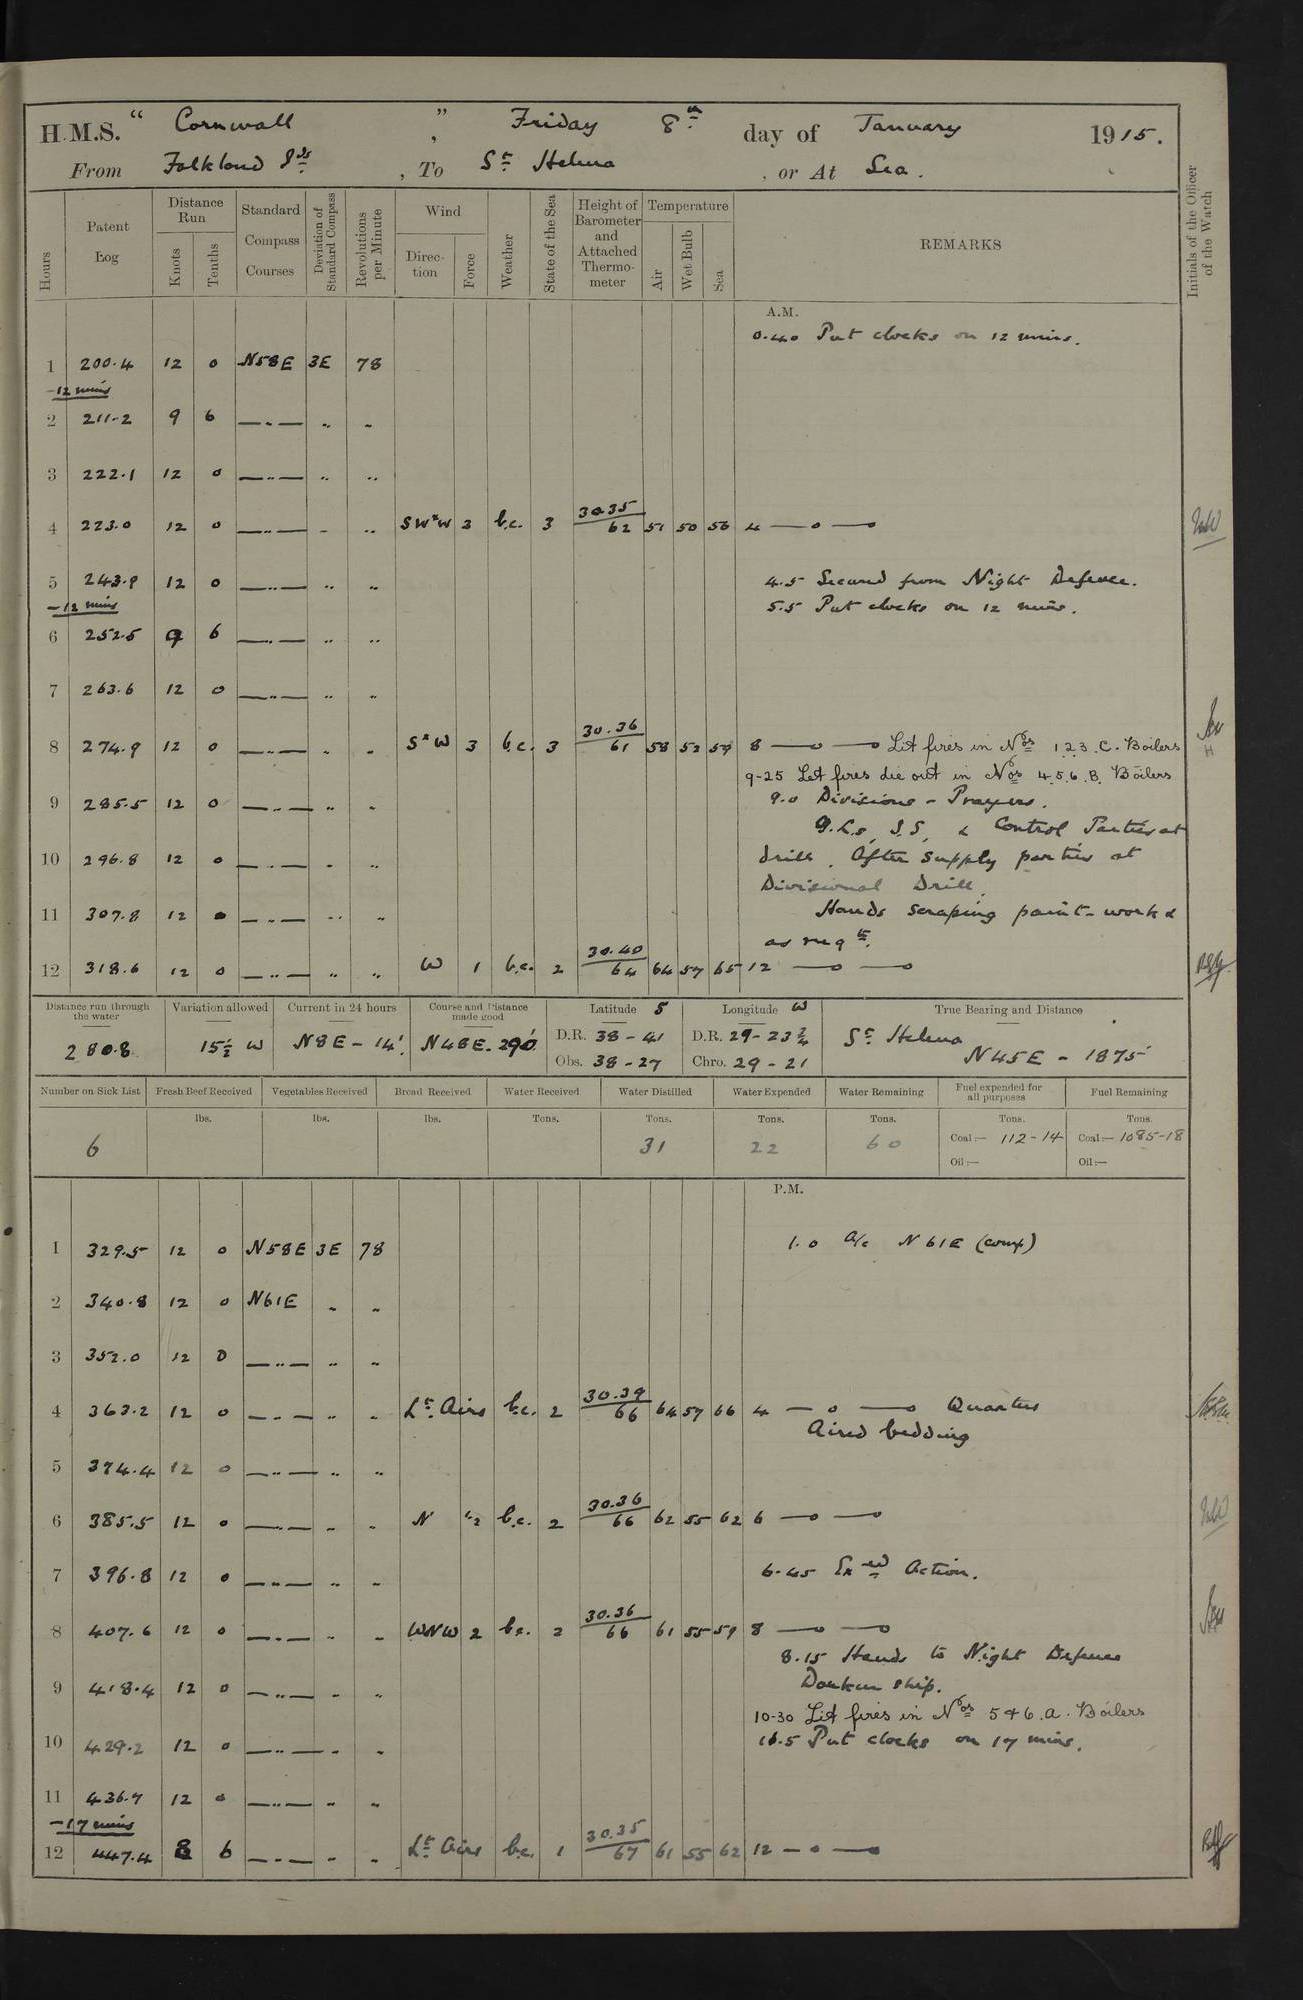 H.M.S. " Cornwall " , Friday 8th day of January 1915.
From Falkland Ids , To St Helena , or At Sea .
Hours Patent Log Distance Run Knots Tenths Standard Compass Courses Deviation of Standard Compass Revolutions per Minute Wind Direc- tion Force Weather State of the Sea Height of Barometer and Attached Thermo- meter Temperature Air Wet Bulb Sea REMARKS Initials of the Officer of the Watch
A.M.
0.40 Put clocks on 12 mins.
1 200.4 12 0 N58E 3E 78
-12 mins
2 211.2 9 6 —„— „ „
3 222.1 12 0 —„— „ „
4 223.0 12 0 —„— „ „ SWxW 3 b.c. 3 30.35 62 51 50 56 4 —o —o
5 243.9 12 0 —„— „ „ 4.5 Secured from Night Defence.
-12 mins 5.5 Put clocks on 12 mins.
6 252.5 9 6 —„— „ „
7 263.6 12 0 —„— „ „
8 274.9 12 0 —„— „ „ SxW 3 b.c. 3 30.36 61 58 52 59 8 —o —o Lit fires in Nos 1.2.3.C. Boilers
9-25 Let fires die out in Nos 4.5.6.B. Boilers
9 285.5 12 0 —„— „ „ 9.0 Divisions - Prayers.
G.L.s, S.S, & Control Parties at
10 296.8 12 0 —„— „ „ drill. After supply parties at
Divisional Drill.
11 307.8 12 0 —„— „ „ Hands scraping paint-work &
as reqte.
12 318.6 12 0 —„— „ „ W 1 b.c. 2 30.40 64 64 57 65 12 —o —o
Distance run through the water Variation allowed Current in 24 hours Course and Distance made good Latitude S Longitude W True Bearing and Distance
280.8 15½ W N8E - 14'. N48E. 290' D.R. 38 - 41 D.R. 29 - 23¾ St Helena
Obs. 38 - 27 Chro. 29 - 21 N45E - 1875'
Number on Sick List Fresh Beef Received Vegetables Received Bread Received Water Received Water Distilled Water Expended Water Remaining Fuel expended for all purposes Fuel Remaining
lbs. lbs. lbs. Tons. Tons. Tons. Tons. Tons. Tons.
6 31 22 60 Coal:— 112-14 Coal:— 1085-18
Oil:— Oil:—
P.M.
1 329.5 12 0 N58E 3E 78 1.0 A/c N61E (comp)
2 340.8 12 0 N61E „ „
3 352.0 12 0 —„— „ „
4 363.2 12 0 —„— „ „ Lt. Airs b.c. 2 30.39 66 64 57 66 4 —o —o Quarters
Aired bedding
5 374.4 12 0 —„— „ „
6 385.5 12 0 —„— „ „ N 1-2 b.c. 2 30.36 66 62 55 62 6 —o —o
7 396.8 12 0 —„— „ „ 6.45 Exed Action.
8 407.6 12 0 —„— „ „ WNW 2 b.c. 2 30.36 66 61 55 59 8 —o —o
8.15 Hands to Night Defence
9 418.4 12 0 —„— „ „ Darken ship.
10-30 Lit fires in Nos 5 & 6.a. Boilers
10 429.2 12 0 —„— „ „ 10.5 Put clocks on 17 mins.
11 436.7 12 0 —„— „ „
-17 mins
12 447.4 8 6 —„— „ „ Lt Airs b.c. 1 30.35 67 61 55 62 12 —o —o